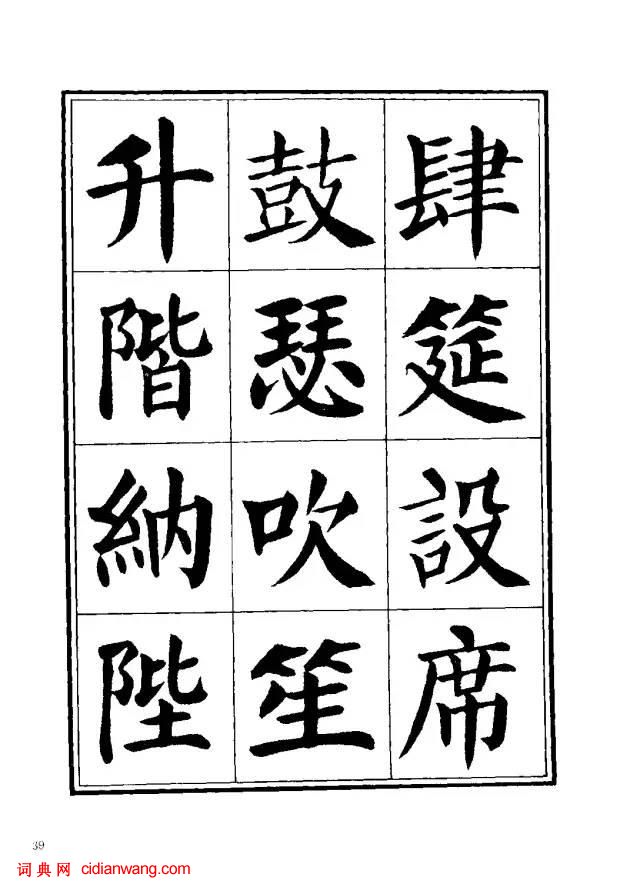 肆筵設席
鼓瑟吹笙
升階納陛
39
词典网 cidianwang.com